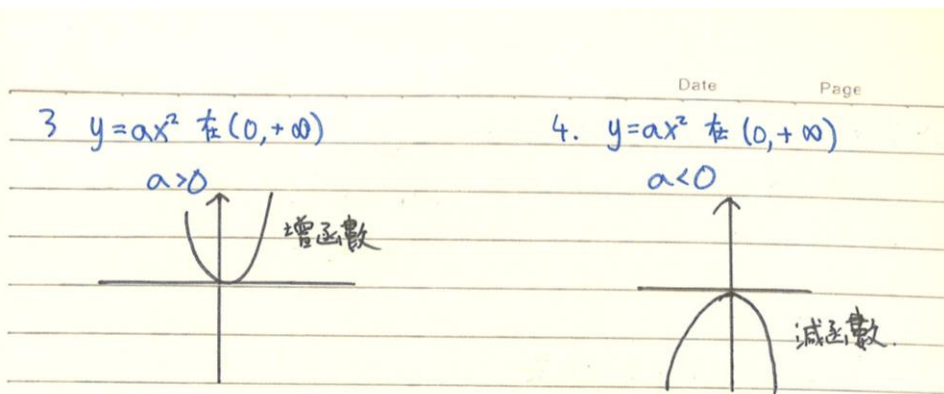 Date Page
3 y=ax² 在(0,+∞)
a>0
增函數
4. y=ax² 在(0,+∞)
a<0
減函數.